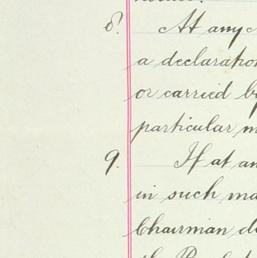 8. At any
a declaration
or carried by
particular m
9. If at an
in such ma
Chairman d